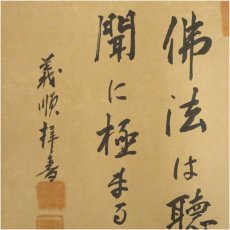 佛法は聴
聞に極まる
義順拝書